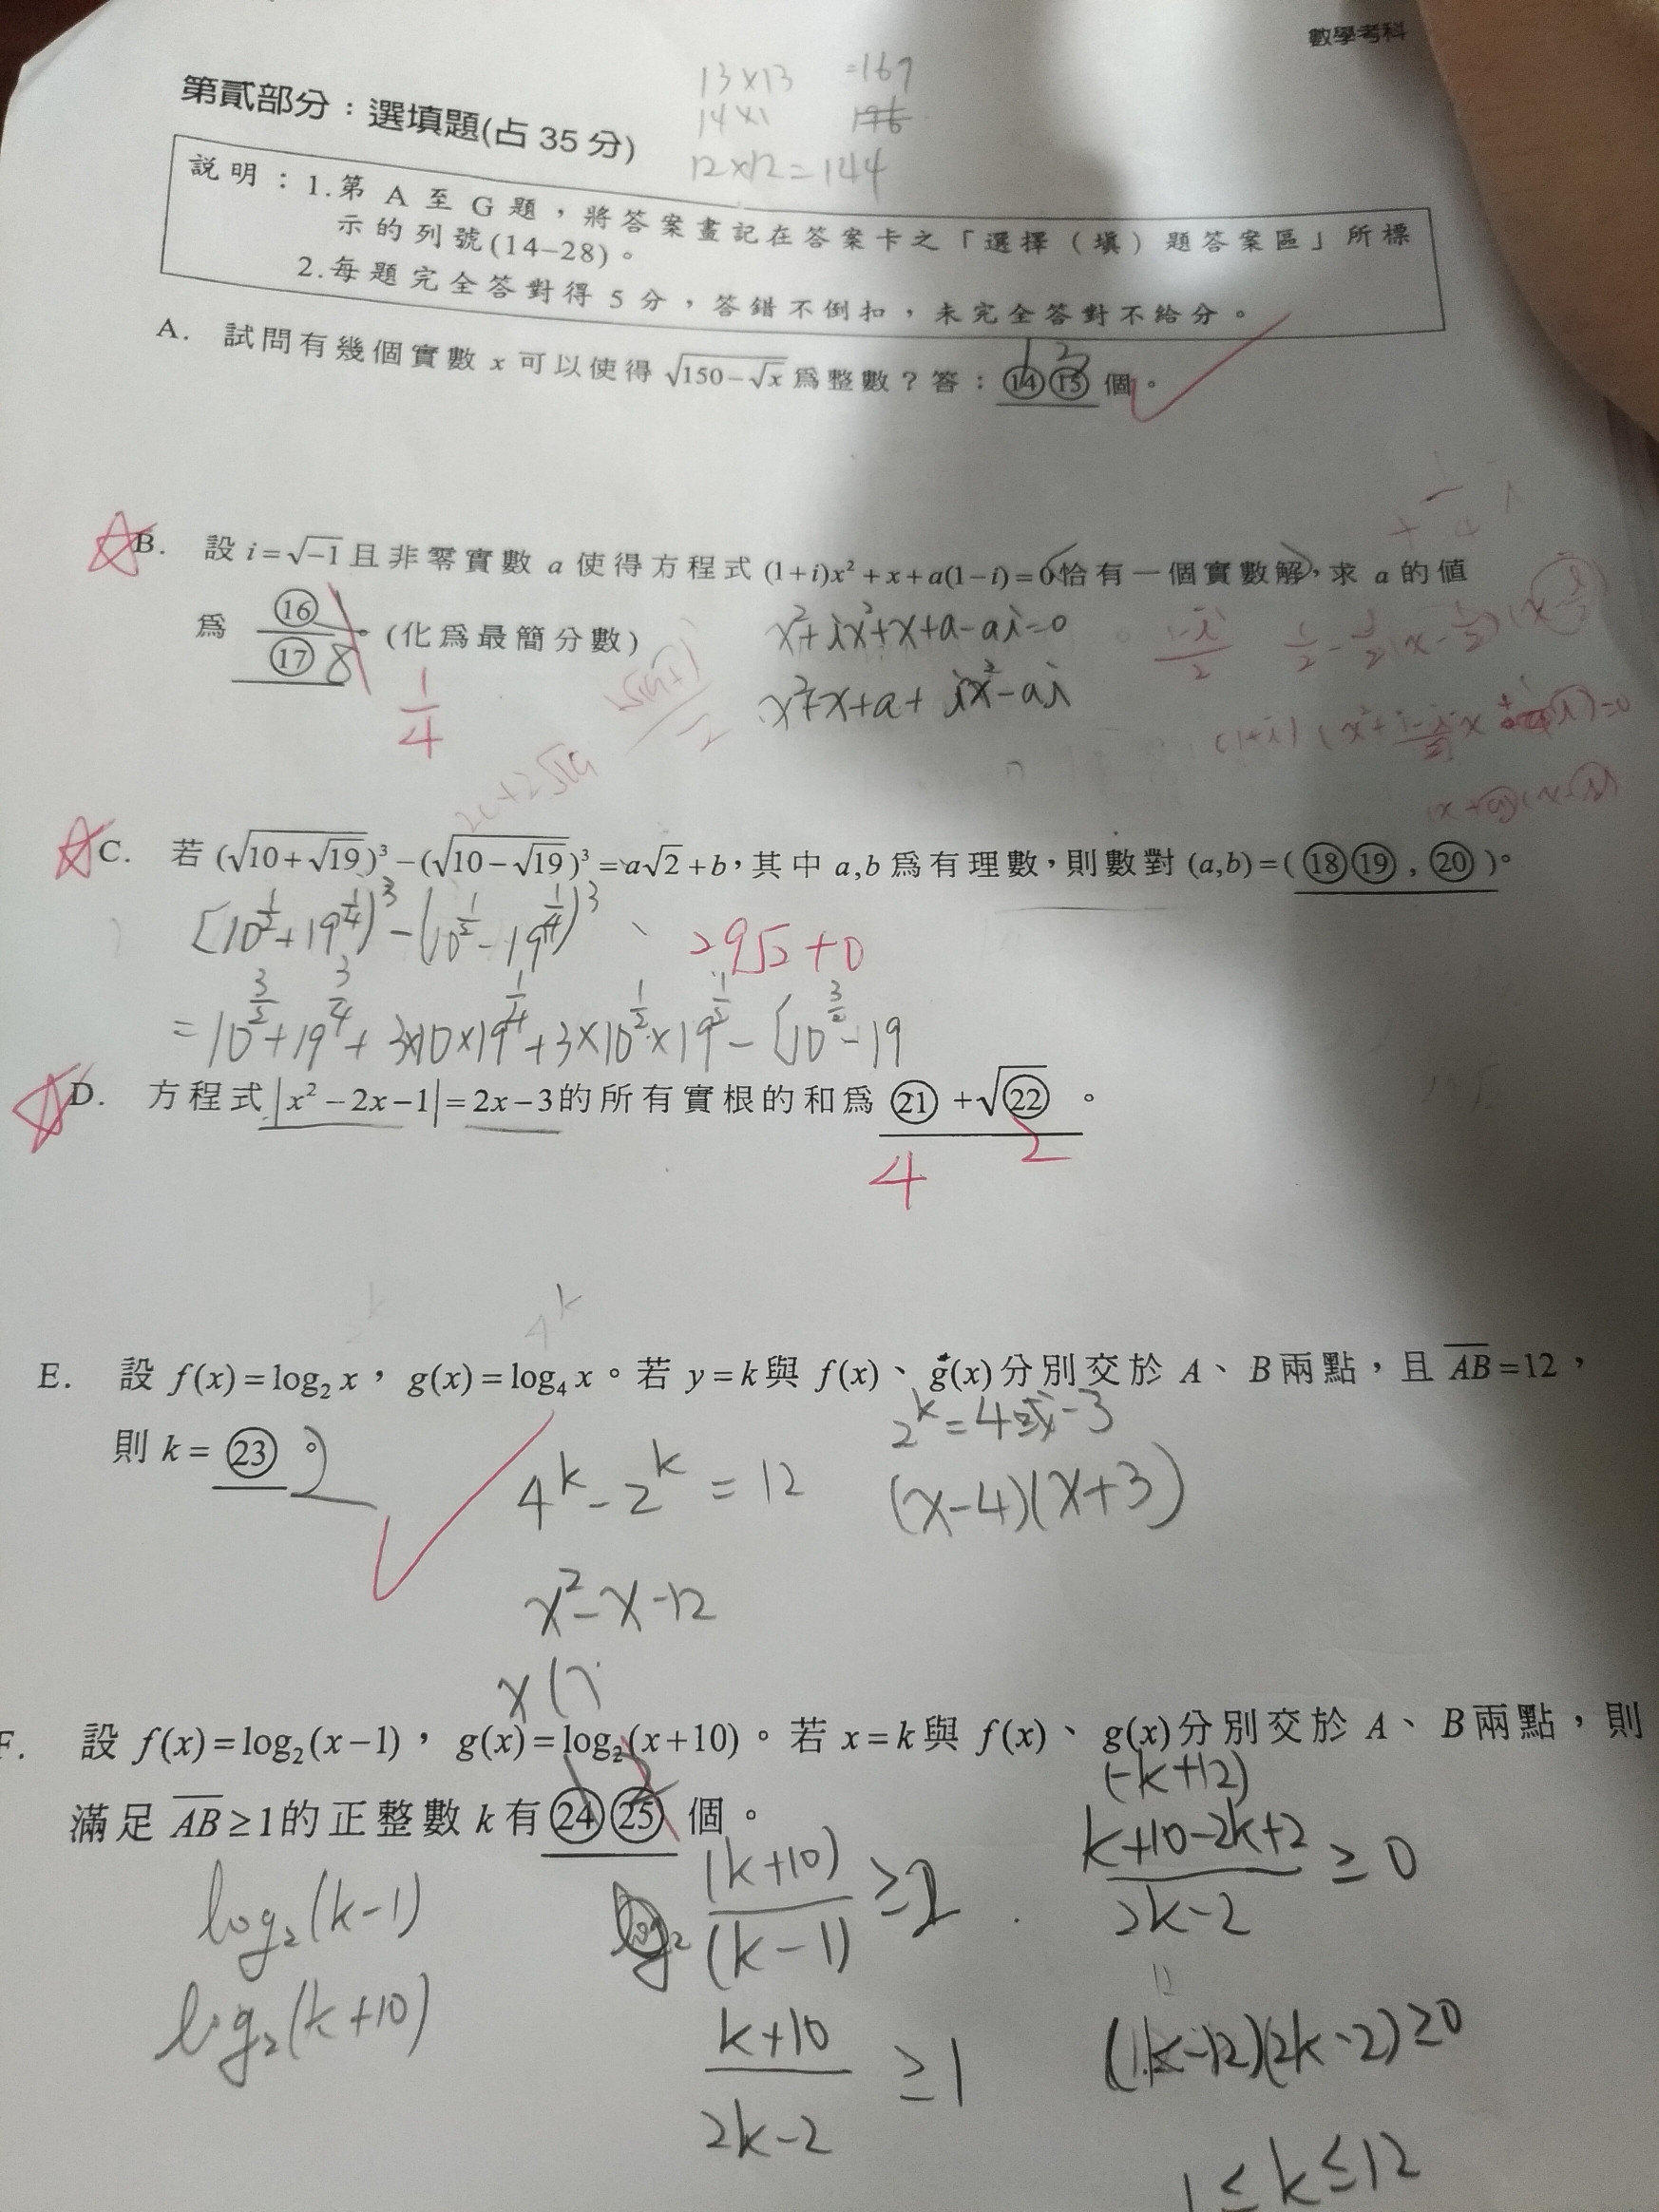 數學考科
13×13 =169
第貳部分：選填題(占 35 分)
14×1 196
12×12=144
說明：1.第 A 至 G 題，將答案畫記在答案卡之「選擇（填）題答案區」所標
示的列號(14–28)。
2.每題完全答對得 5 分，答錯不倒扣，未完全答對不給分。
A. 試問有幾個實數 x 可以使得 √(150−√x) 為整數？答：⑭⑮ 個。
13
B. 設 i=√−1 且非零實數 a 使得方程式 (1+i)x²+x+a(1−i)=0 恰有一個實數解，求 a 的值
為 ⑯/⑰ 。(化為最簡分數)
1/8
1/4
x²+ix²+x+a-ai=0
x²+x+a+ix²-ai
C. 若 (√(10+√19))³−(√(10−√19))³=a√2+b，其中 a,b 為有理數，則數對 (a,b)=(⑱⑲,⑳)。
[10^(1/2)+19^(1/4)]³-(10^(1/2)-19^(1/4))³
29√2+0
=10^(3/2)+19^(3/4)+3×10×19^(1/4)+3×10^(1/2)×19^(1/2)-[10^(3/2)-19
D. 方程式 |x²−2x−1|=2x−3 的所有實根的和為 ㉑+√㉒ 。
4 2
4^k
E. 設 f(x)=log₂x，g(x)=log₄x。若 y=k 與 f(x)、g(x) 分別交於 A、B 兩點，且 AB=12，
則 k= ㉓ 。
2
2^k=4或-3
4^k-2^k=12
(x-4)(x+3)
x²-x-12
x(
F. 設 f(x)=log₂(x−1)，g(x)=log₂(x+10)。若 x=k 與 f(x)、g(x) 分別交於 A、B 兩點，則
滿足 AB≥1 的正整數 k 有 ㉔㉕ 個。
(-k+12)
log₂(k-1)
log₂ (k+10)/(k-1) ≥2
(k+10-2k+2)/(2k-2) ≥0
log₂(k+10)
(k+10)/(2k-2) ≥1
(k-12)(2k-2)≥0
1≤k≤12